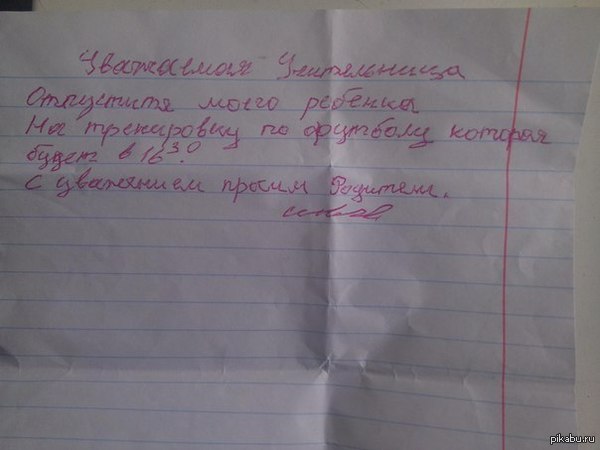 Уважаемая Учительница
Отпуститя моего ребенка
На тренировку по футболу которая
будет в 16³⁰.
С уважением просим Родители.
pikabu.ru